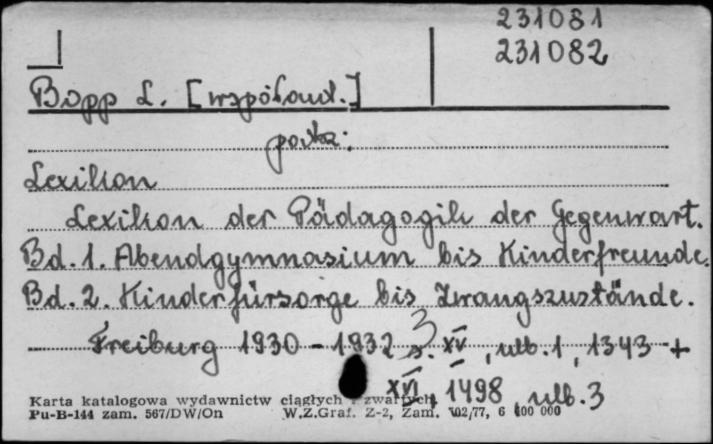 231081
231082
Bopp L. [współaut.]
patrz:
Lexikon
Lexikon der Pädagogik der Gegenwart.
Bd. 1. Abendgymnasium bis Kinderfreunde.
Bd. 2. Kinderfürsorge bis Zwangszustände.
Freiburg 1930 - 1932 s. XV, nlb. 1, 1343 +
XVI, 1498, nlb. 3
Karta katalogowa wydawnictw ciągłych i zwartych
Pu-B-144 zam. 567/DW/On W.Z.Graf. Z-2, Zam. 102/77, 6 600 000